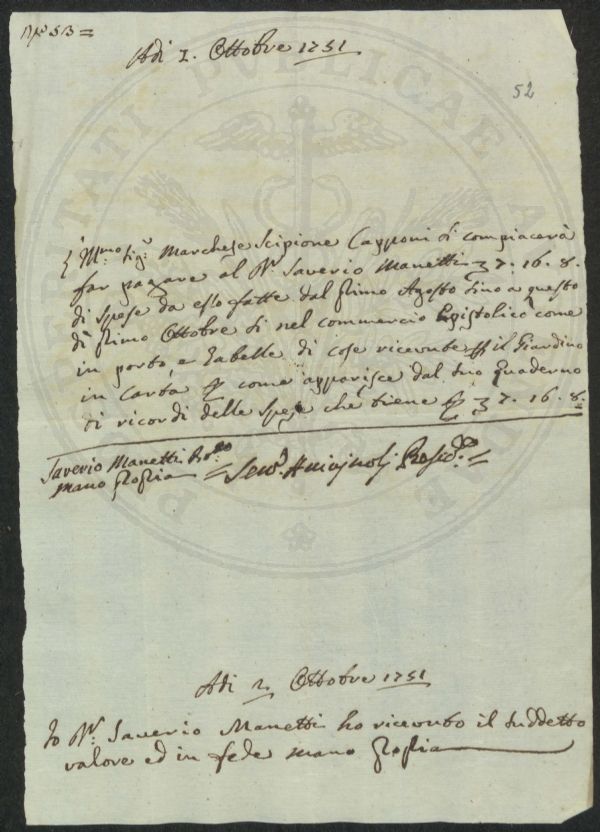 N.º 53 =
Adi 1. Ottobre 1751
52
L'Ill.mo Sig.r Marchese Scipione Capponi si compiacerà
far pagare al Dr. Saverio Manetti 7. 16. 8.
di spese da esso fatte dal primo Agosto sino a questo
dì primo Ottobre sì nel commercio Epistolico come
in porto, e Gabelle di cose ricevute p il Giardino
in Carta come apparisce dal suo Quaderno
di ricordi delle spese che tiene 7. 16. 8.
Saverio Manetti
mano propria = Presid.e =
Adi 2. Ottobre 1751
Io Dr. Saverio Manetti ho ricevuto il suddetto
valore ed in fede mano propria
PROSPERITATI PUBLICAE